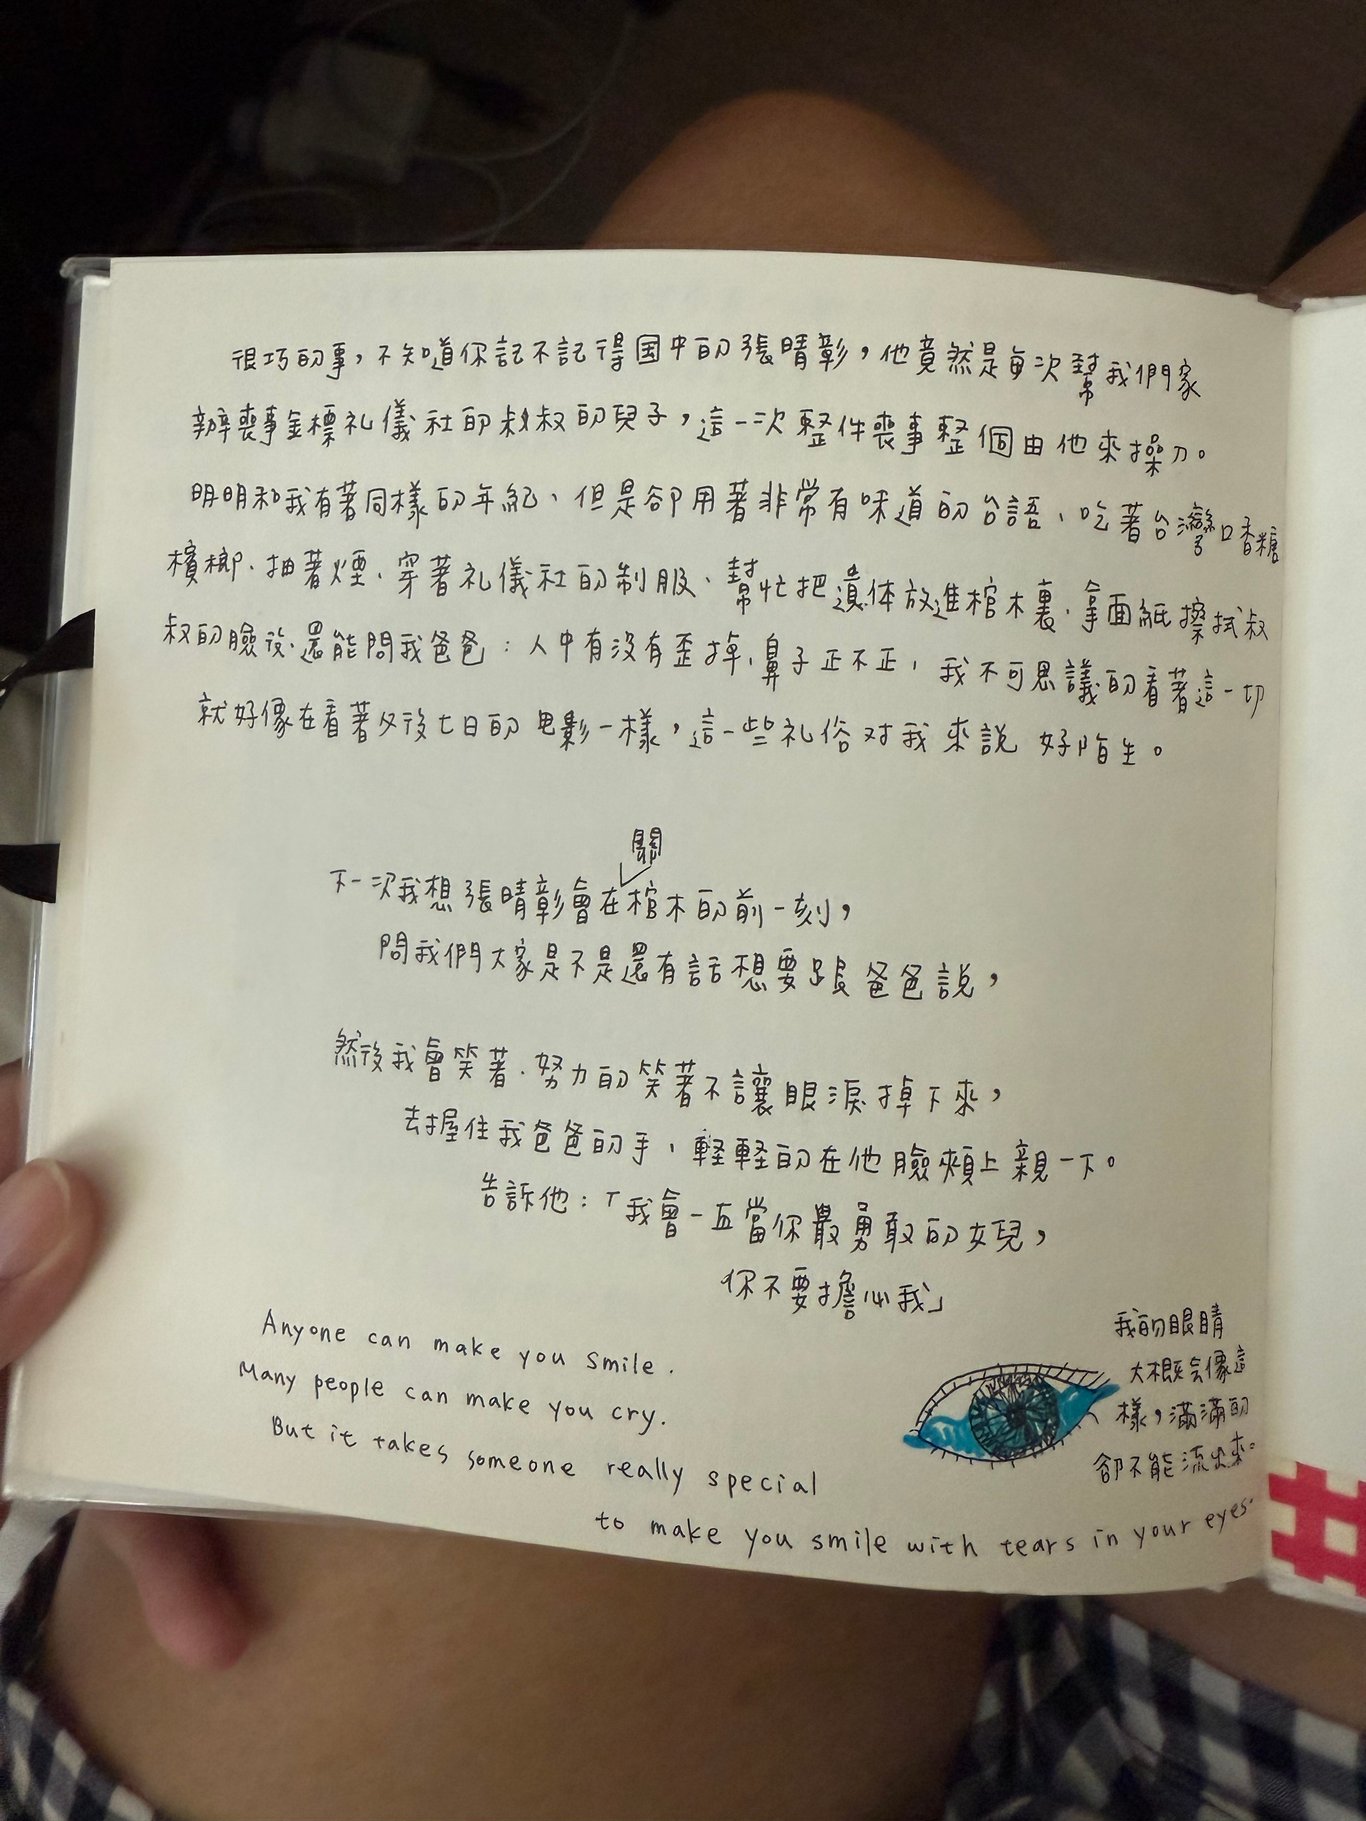 很巧的事，不知道你記不記得国中的張晴彰，他竟然是每次幫我們家
辦喪事金標礼儀社的叔叔的兒子，這一次整件喪事整個由他來操刀。
明明和我有著同樣的年紀、但是卻用著非常有味道的台語、吃著台灣口香糖
檳榔、抽著煙、穿著礼儀社的制服、幫忙把遺体放進棺木裏、拿面紙擦拭叔
叔的臉後、還能問我爸爸：人中有沒有歪掉、鼻子正不正，我不可思議的看著這一切
就好像在看著父後七日的电影一樣，這一些礼俗对我來說 好陌生。
關
下一次我想張晴彰會在棺木的前一刻，
問我們大家是不是還有話想要跟爸爸說，
然後我會笑著、努力的笑著不讓眼淚掉下來，
去握住我爸爸的手，輕輕的在他臉頰上親一下。
告訴他：「我會一直當你最勇敢的女兒，
你不要擔心我」
Anyone can make you smile.
Many people can make you cry.
But it takes someone really special
to make you smile with tears in your eyes.
我的眼睛
大概会像這
樣，滿滿的
卻不能流出來。